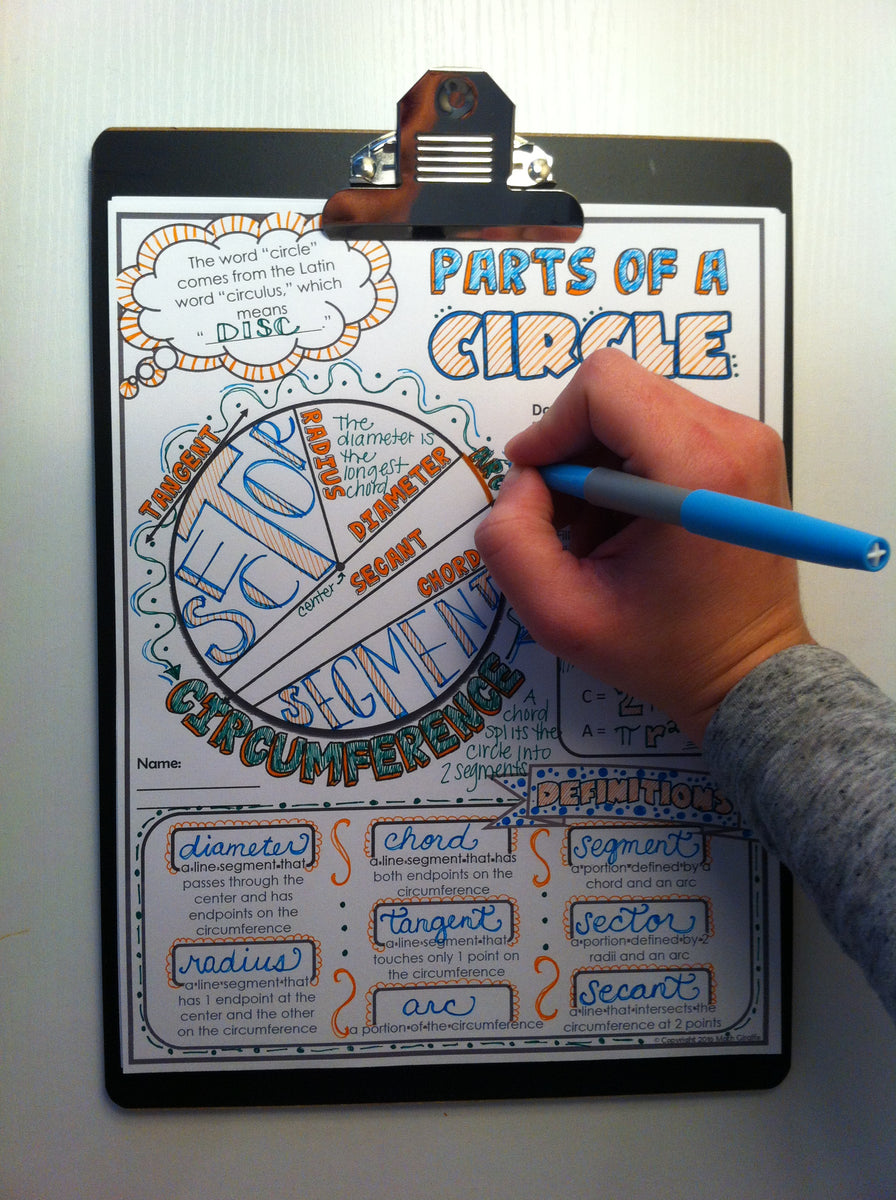 The word "circle"
comes from the Latin
word "circulus," which
means
"DISC."
PARTS OF A
CIRCLE
TANGENT
SECTOR
RADIUS
The
diameter is
the
longest
chord
DIAMETER
ARC
SECANT
center
CHORD
SEGMENT
CIRCUMFERENCE
A
chord
splits the
circle into
2 segments
C = 2
A = π r²
Name:
DEFINITIONS
diameter
a line segment that
passes through the
center and has
endpoints on the
circumference
radius
a line segment that
has 1 endpoint at the
center and the other
on the circumference
chord
a line segment that has
both endpoints on the
circumference
tangent
a line segment that
touches only 1 point on
the circumference
arc
a portion of the circumference
segment
a portion defined by a
chord and an arc
sector
a portion defined by 2
radii and an arc
secant
a line that intersects the
circumference at 2 points
© Copyright 2016 Math Giraffe